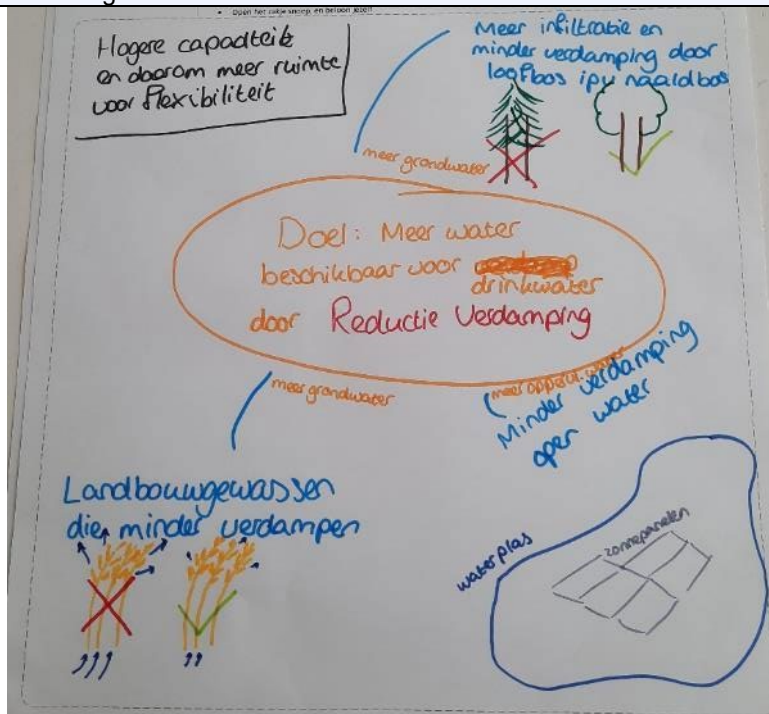 Open het zakje snoep, en beloon jezelf
Hogere capaciteit
en daarom meer ruimte
voor flexibiliteit
Meer infiltratie en
minder verdamping door
loofbos ipv naaldbos
meer grondwater
Doel: Meer water
beschikbaar voor
drinkwater
door Reductie Verdamping
meer grondwater
meer oppervl. water
Minder verdamping
open water
Landbouwgewassen
die minder verdampen
waterplas
zonnepanelen